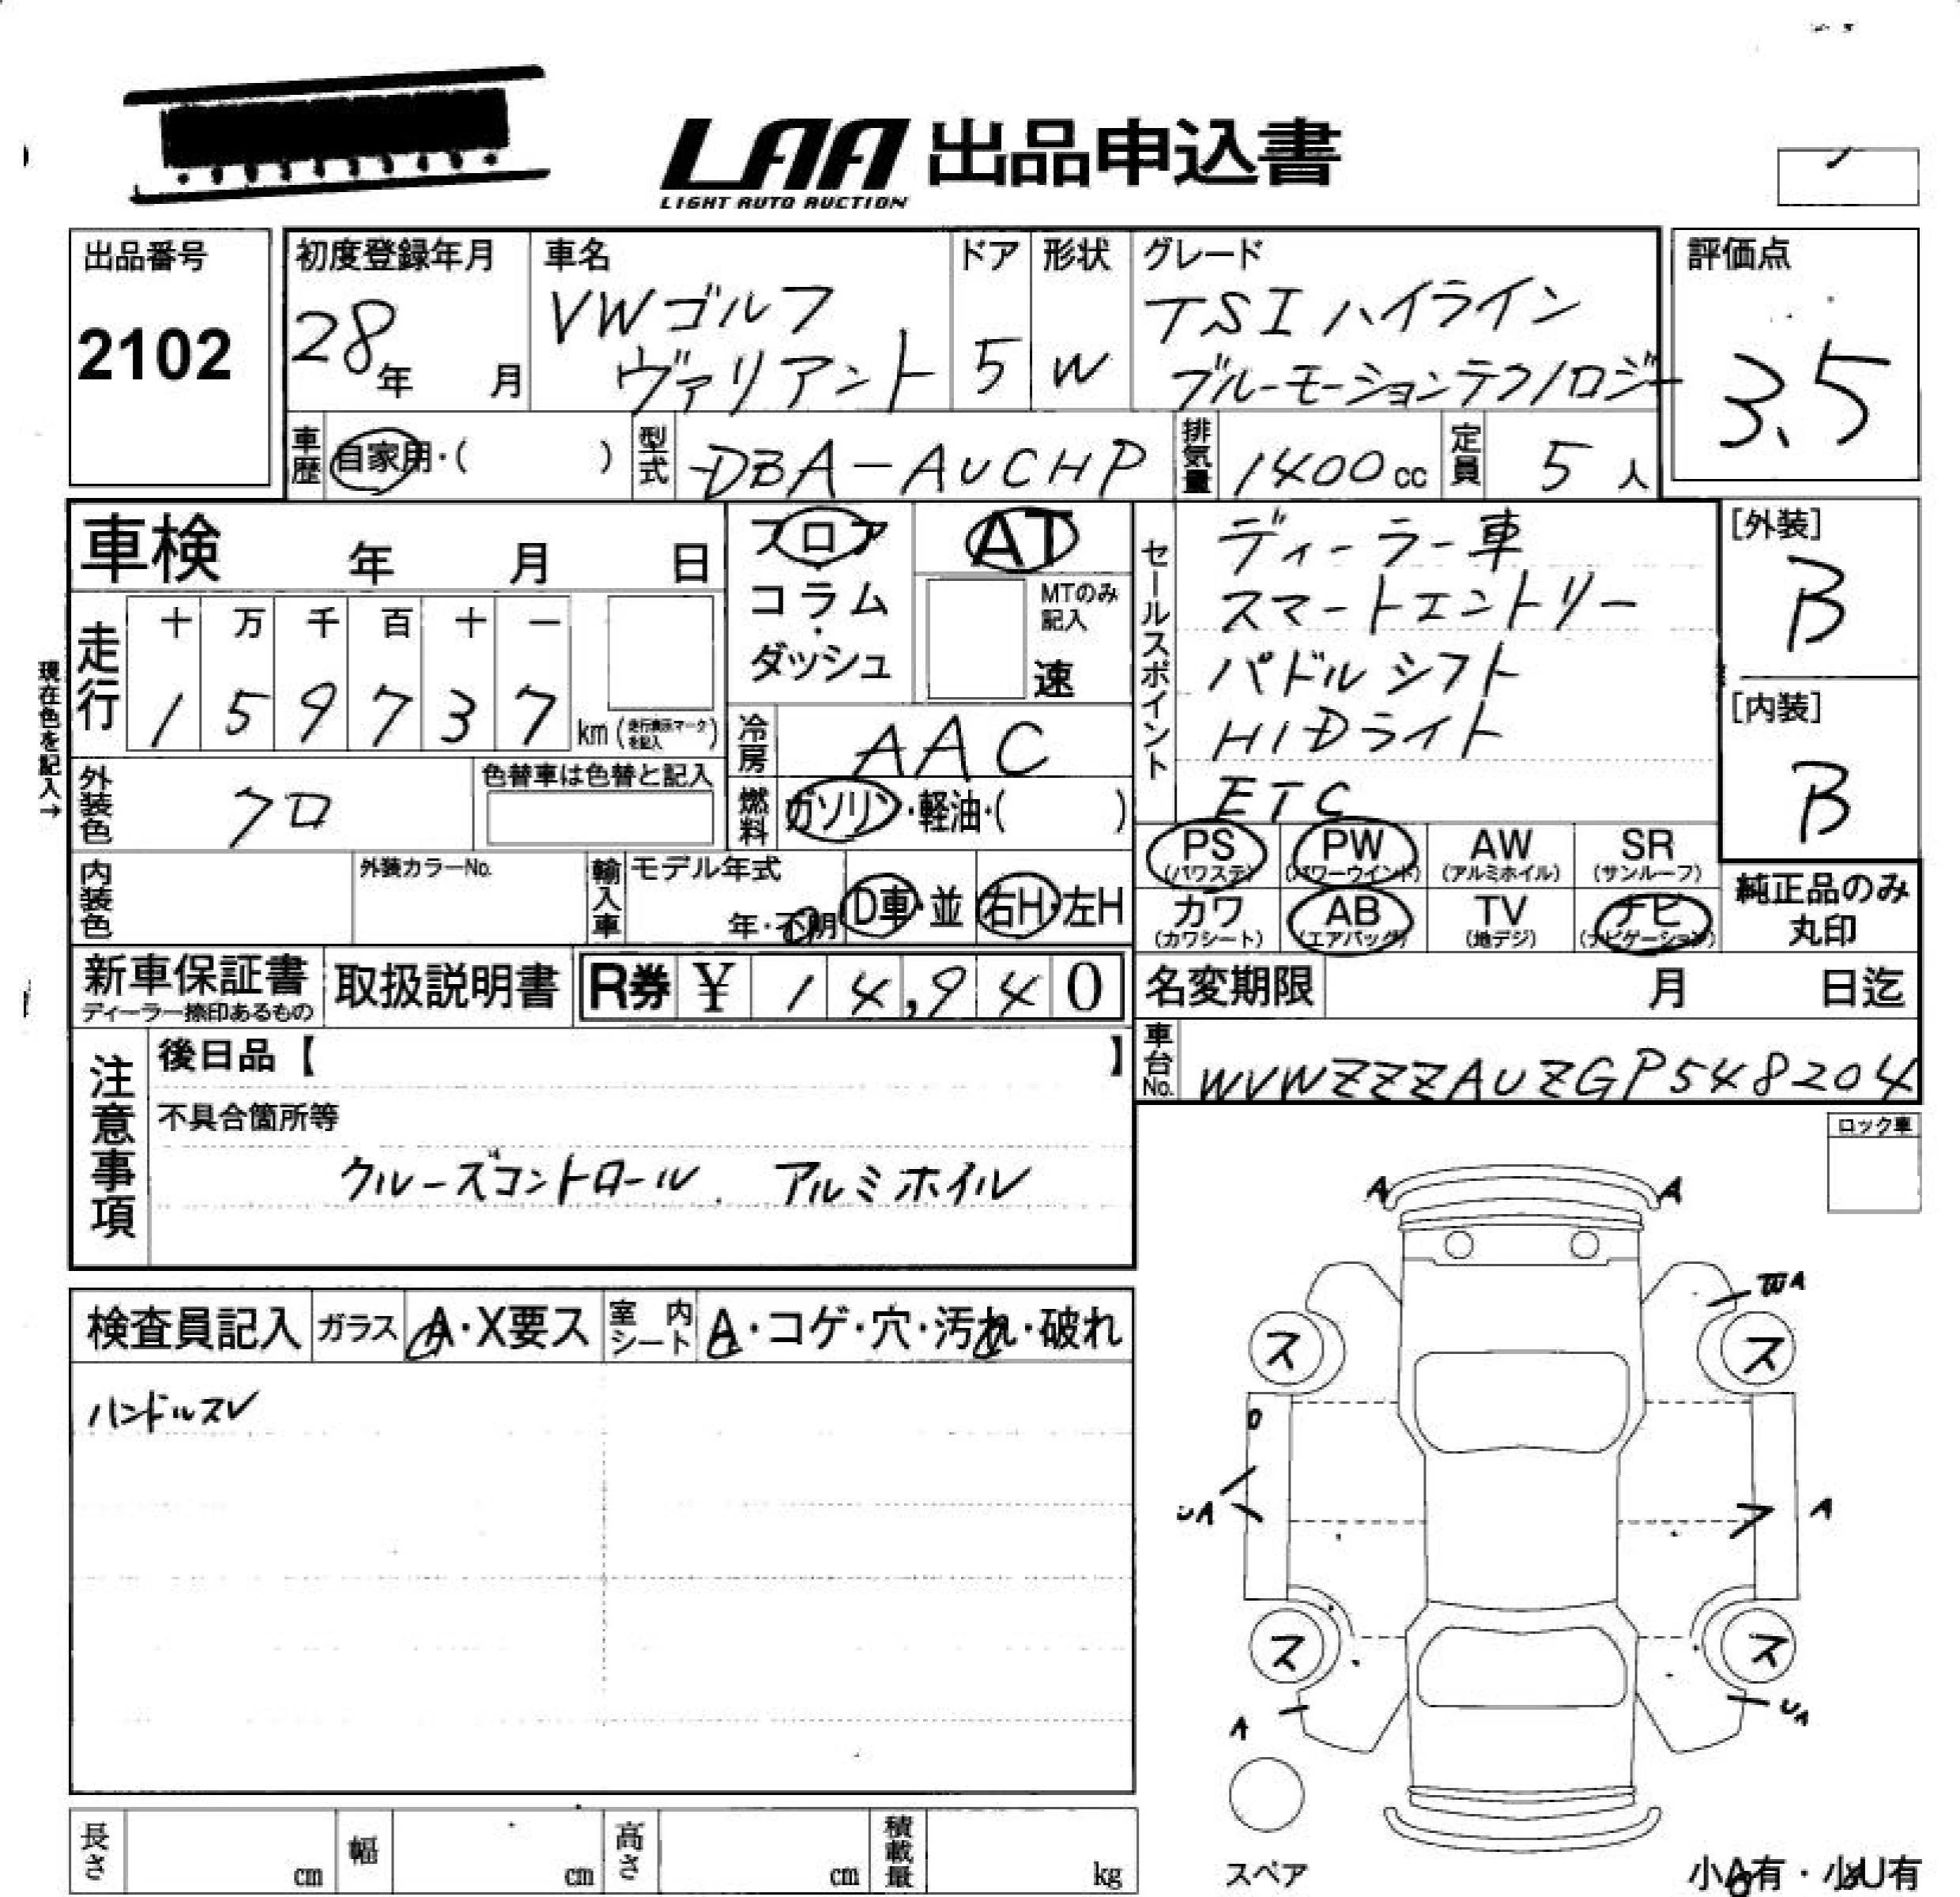 LAA 出品申込書
LIGHT AUTO AUCTION
出品番号
2102
初度登録年月
28年 月
車名
VWゴルフ
ヴァリアント
ドア
5
形状
W
グレード
TSIハイライン
ブルーモーションテクノロジー
評価点
3.5
車歴
自家用・( )
型式
DBA-AUCHP
排気量
1400cc
定員
5人
車検 年 月 日
フロア
コラム
・
ダッシュ
AT
MTのみ
記入
速
セールスポイント
ディーラー車
スマートエントリー
パドルシフト
HIDライト
ETC
[外装]
B
[内装]
B
現在色を記入→
走行
十 万 千 百 十 一
1 5 9 7 3 7 km(走行表示マークを記入)
冷房
AAC
外装色
クロ
色替車は色替と記入
燃料
ガソリン・軽油・( )
PS
(パワステ)
PW
(パワーウインド)
AW
(アルミホイル)
SR
(サンルーフ)
内装色
外装カラーNo.
輸入車
モデル年式
年・不明
D車・並
右H・左H
カワ
(カワシート)
AB
(エアバッグ)
TV
(地デジ)
ナビ
(ナビゲーション)
純正品のみ
丸印
新車保証書
ディーラー捺印あるもの
取扱説明書
R券 ¥ 14,940
名変期限 月 日迄
車台No.
WVWZZZAUZGP548204
注意事項
後日品【 】
不具合箇所等
クルーズコントロール アルミホイル
ロック車
検査員記入
ガラス
A・X要ス
室内シート
A・コゲ・穴・汚れ・破れ
ハンドルスレ
A A
UA
ス ス
UA
A
ス ス
A
UA
スペア
長さ cm
幅 cm
高さ cm
積載量 kg
小A有・小U有